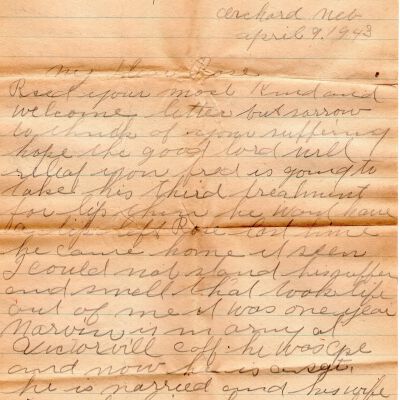 Orchard Neb
april 9. 1943
my Rose
Recd your most Kind and
welcome letter but sorrow
to think of your suffering
hope the good lord will
you fred is going to
take his third treatment
for lip this he wont have
lip left Rose last time
he came home it seem
I could not stand his suffer
and smell that took life
out of me it was one year
Marvin is in army at
Victorvill calf. he was cpl
and now he is a sgt.
he is married and his wife